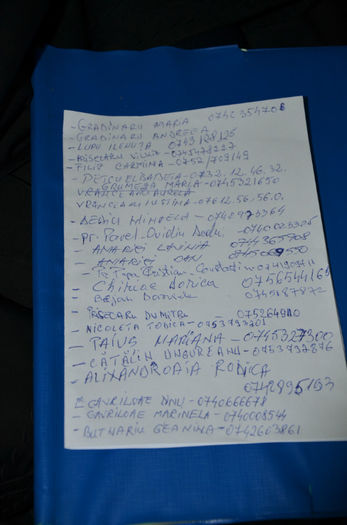 - GRADINARU MARIA 0742354708
- GRADINARU ANDREEA
- LUPU ILENUȚA 0743128125
- ROȘCARU 0745478227
- FILIP CARMINA - 0752/709149
- ELISABETA - 0732.12.46.32.
GRUMEZA MARIA - 0745321650
VRANCEANU AURELA
VRANCEANU IUSTINA - 0761256.56.0.
- MIHAELA - 0748973364
- Pr. Pavel - Ovidiu 0740023325
- AMARIEI LAVINIA 0744365908
- AMARIEI DAN
- Pr. Țipa Cristian - Constantin
- Chiruac Dorica 0756544165
- Bejan 0745187872
- ROȘCARU DUMITRU 075264910
- NICOLETA TODICA - 0753793701
- PAIUS MARIANA - 0745327300
- CĂTĂLIN UNGUREANU - 0753797876
- ALIXANDROAIA RODICA
0742995193
- GAVRILOAE DINU - 0740666678
- GAVRILOAE MARINELA - 0740008544
- BUTNARIU GEANINA - 0742603861